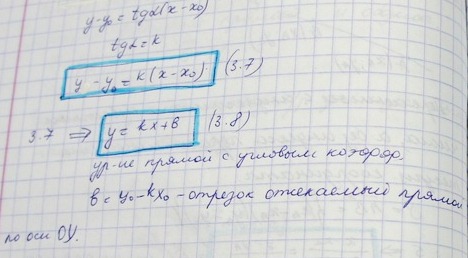 y-y₀ = tgα(x-x₀)
tgα = k
y - y₀ = k(x-x₀) (3.7)
3.7 ⇒ y = kx+в (3.8)
ур-ие прямой с угловым коэфф.
в = y₀-kx₀ - отрезок отсекаемый прямой
по оси OY.